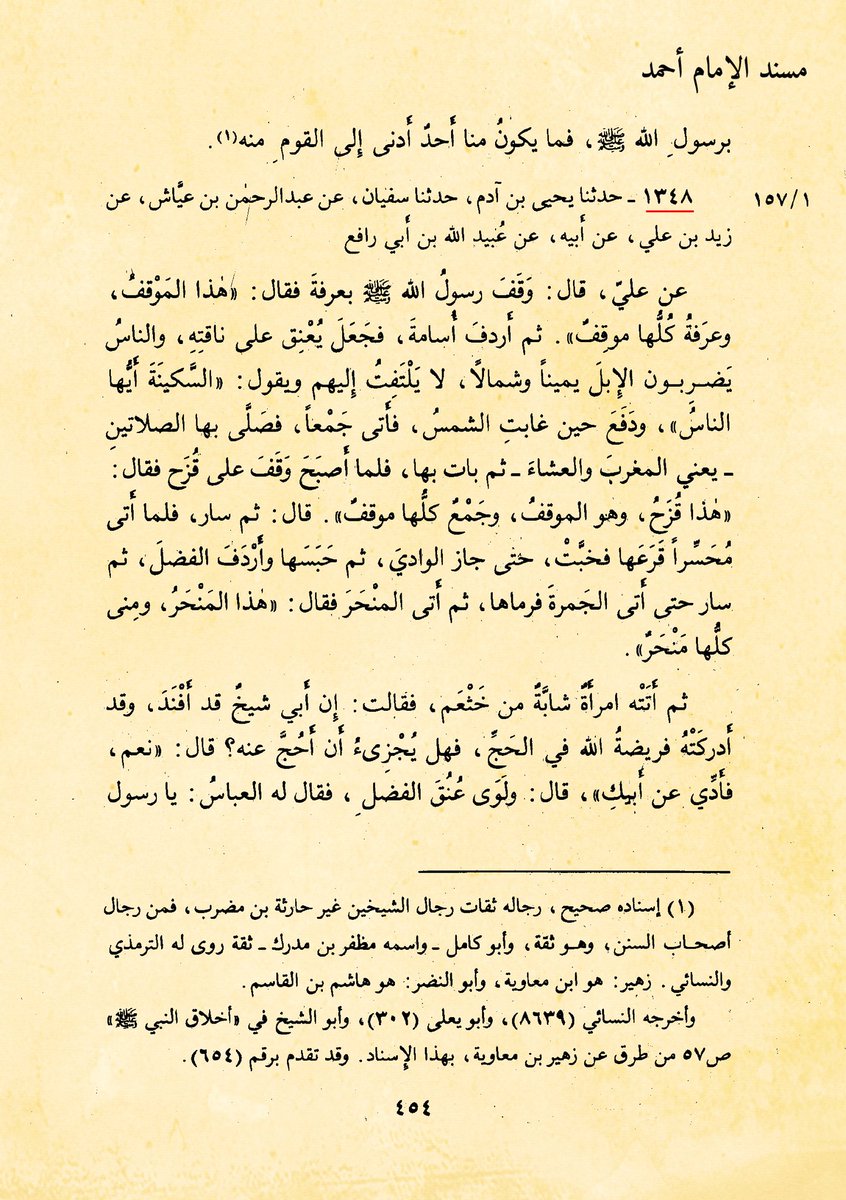 مسند الإمام أحمد
برسولِ الله ﷺ، فما يكونُ منا أَحدٌ أَدنى إِلى القومِ منه(١).
١٥٧/١ ١٣٤٨ ـ حدثنا يحيى بن آدم، حدثنا سفيان، عن عبدالرحمٰن بن عيَّاش، عن
زيد بن علي، عن أَبيه، عن عُبيد الله بن أَبي رافع
عن عليّ، قال: وَقَفَ رسولُ الله ﷺ بعرفةَ فقال: «هٰذا المَوْقفُ،
وعرَفةُ كُلُّها موقِفٌ». ثم أَردفَ أُسامةَ، فجَعَلَ يُعْنِق على ناقتِهِ، والناسُ
يَضربون الإِبلَ يميناً وشمالًا، لا يَلْتَفِتُ إِليهم ويقول: «السَّكينَةَ أَيُّها
الناسُ»، ودَفَعَ حين غابتِ الشمسُ، فأَتى جَمْعاً، فصَلَّى بها الصلاتينِ
ـ يعني المغربَ والعشاءَ ـ ثم بات بها، فلما أَصبَحَ وَقَفَ على قُزَح فقال:
«هٰذا قُزَحُ، وهو الموقفُ، وجَمْعٌ كلُّها موقفٌ». قال: ثم سار، فلما أَتى
مُحَسِّراً قَرَعَها فخبَّتْ، حتى جاز الواديَ، ثم حَبَسَها وأَرْدَفَ الفضلَ، ثم
سار حتى أَتى الجَمرةَ فرماها، ثم أَتى المنْحَرَ فقال: «هٰذا المَنْحَرُ، ومِنى
كلُّها مَنْحَرٌ».
ثم أَتَتْه امرأَةٌ شابَّةٌ من خَثْعَم، فقالت: إِن أَبي شيخٌ قد أَفْنَدَ، وقد
أَدركَتْهُ فريضةُ الله في الحَجِّ، فهل يُجْزِىءُ أَن أَحُجَّ عنه؟ قال: «نعم،
فأَدِّي عن أَبيكِ»، قال: ولَوَى عُنُقَ الفضلِ، فقال له العباسُ: يا رسول
(١) إسناده صحيح، رجاله ثقات رجال الشيخين غير حارثة بن مضرب، فمن رجال
أصحاب السنن، وهو ثقة، وأبو كامل ـ واسمه مظفر بن مدرك ـ ثقة روى له الترمذي
والنسائي. زهير: هو ابن معاوية، وأبو النضر: هو هاشم بن القاسم.
وأخرجه النسائي (٨٦٣٩)، وأبو يعلى (٣٠٢)، وأبو الشيخ في «أخلاق النبي ﷺ»
ص٥٧ من طرق عن زهير بن معاوية، بهذا الإسناد. وقد تقدم برقم (٦٥٤).
٤٥٤